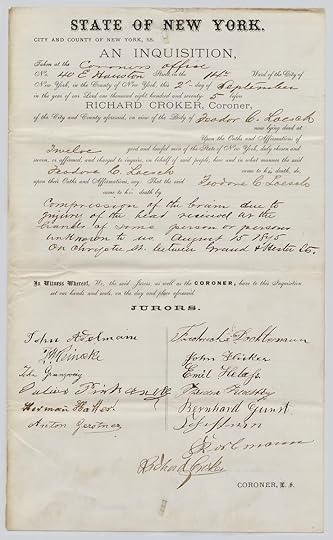 STATE OF NEW YORK.
CITY AND COUNTY OF NEW YORK, SS.
AN INQUISITION,
Taken at the Coroners office
No. 40 E Houston Street in the 14th Ward of the City of
New York, in the County of New York, this 2d day of September
in the year of our Lord one thousand eight hundred and seventy 5 before
RICHARD CROKER, Coroner,
of the City and County aforesaid, on view of the Body of Feodor C. Loesch
now lying dead at
Upon the Oaths and Affirmations of
Twelve good and lawful men of the State of New York, duly chosen and
sworn, or affirmed, and charged to inquire, on behalf of said people, how and in what manner the said
Feodore C Loesch came to his death, do,
upon their Oaths and Affirmations, say: That the said Feodore C Loesch
came to his death by
Compression of the brain due to
injury of the head received at the
hands of some person or persons
unknown to us August 15 1875
On Chrystie St. between Grand & Hester Sts.
In Witness Whereof, We, the said Jurors, as well as the CORONER, have to this Inquisition
set our hands and seals, on the day and place aforesaid.
JURORS.
John
John
Emil
Herman
Bernhard Gunst
Anton Gerstner
Richard Croker
CORONER, L. S.